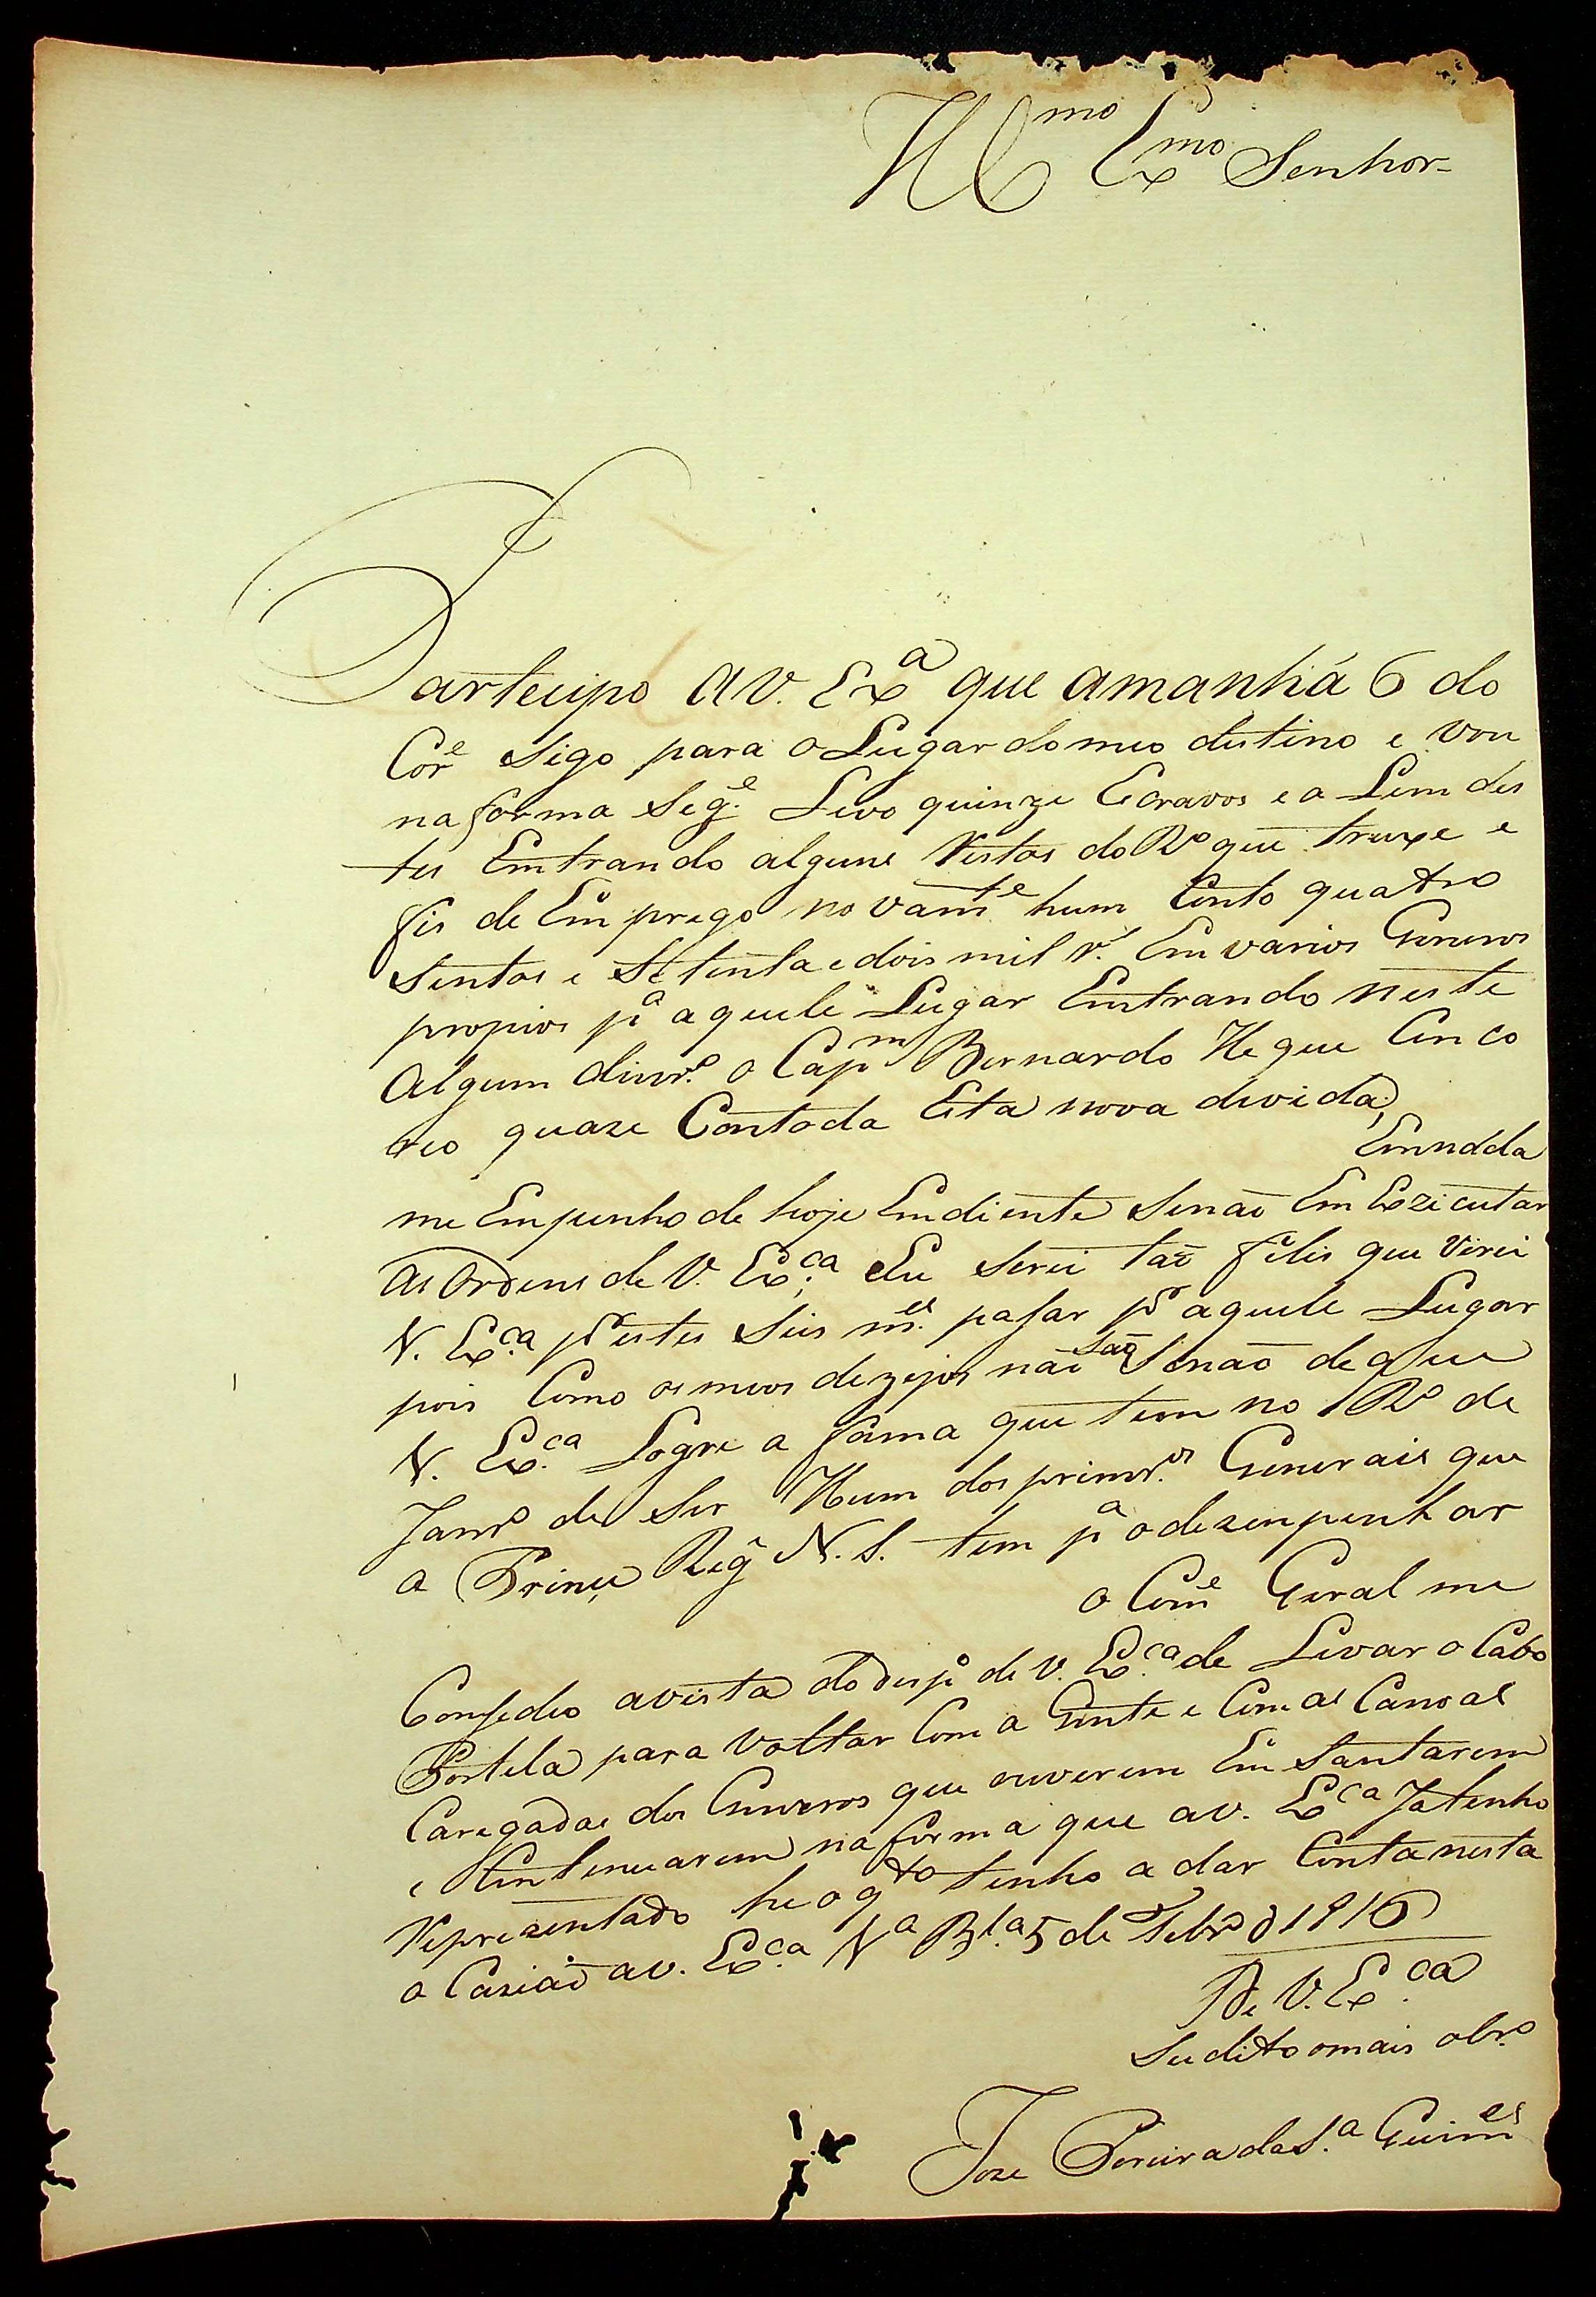 Illmo Exmo Senhor
Partecipo a V. Exa que amanhá 6 do
Core sigo para o Lugar do meo destino e vou
na forma Sege. Levo quinze Escravos e a Lem des
tes Emtrando alguns Restos do Ro que truxe e
fis de Em prego no vamte hum Conto quatro
Sentos e Setenta e dois mil rs. Em varios Generos
propios pa aquele Lugar Emtrando neste
Algum dinro. o Capm Bernardo He que Cinco
deo quaze Contoda Esta nova devida,
Em nada
me Empenho de hoje Em diente Senaõ Em Ezicutar
As Ordens de V. Exca; Eu serei taõ felis que Virei
V. Exca. pr estes Seis mes. pasar pa aquele Lugar
pois Como os meos dezejos naõ saõ Senaõ de que
V. Exca. Logre a fama que tem no Ro de
Janro de Ser Hum dos primros. Generais que
o Princ, Rege N. S. tem pa o dezempenhar
o Come Geral me
Consedeo a vista do desp.o de V. Exca. de Levar o Cabo
Portela para Voltar Com a Gente e Com as Canoas
Caregadas dos Generos que ouverem Em Santarem
e Contenuarem na forma que a V. Exca Ja tenho
Reprezentado he o qto tenho a dar Conta nesta
o Caziaõ a V. Exca. Va Bla. 5 de Febro d 1816
De V. Exca.
Sudito o mais obro.
Joze Pereira da Sa. Guimes